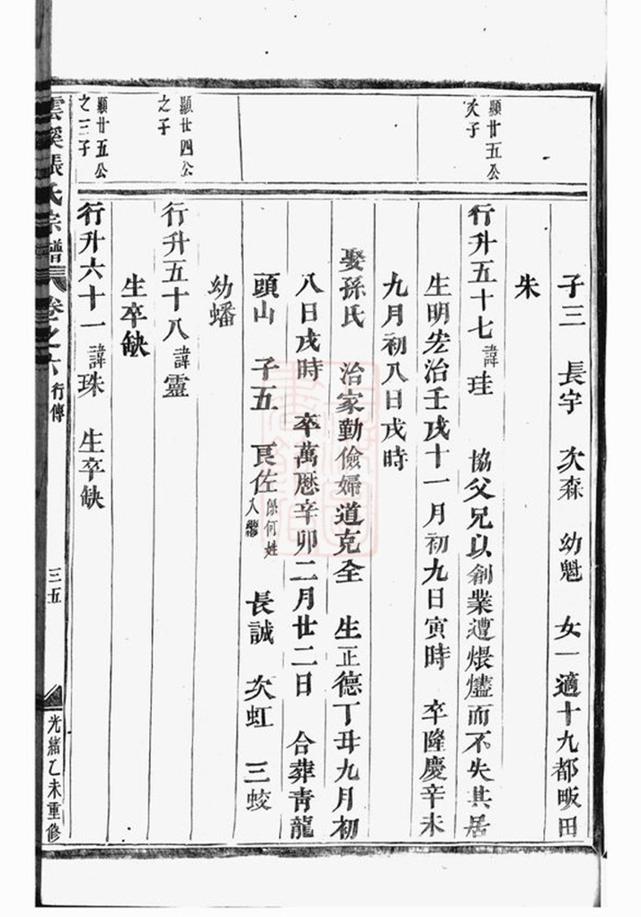 子三　長宇　次森　幼魁　女一適十九都畈田
朱
顯廿五公
次子
行升五十七諱珪　協父兄以創業遭煨燼而不失其居
生明宏治壬戌十一月初九日寅時　卒隆慶辛未
九月初八日戌時
娶孫氏　治家勤儉婦道克全　生正德丁丑九月初
八日戌時　卒萬曆辛卯二月廿二日　合葬青龍
頭山　子五　良佐係何姓入繼　長誠　次虹　三蛟
幼蟠
顯廿四公
之子
行升五十八諱靈
生卒缺
顯廿五公
之三子
行升六十一諱珠　生卒缺
雲溪張氏宗譜　卷之六　行傳　三五　光緒乙未重修